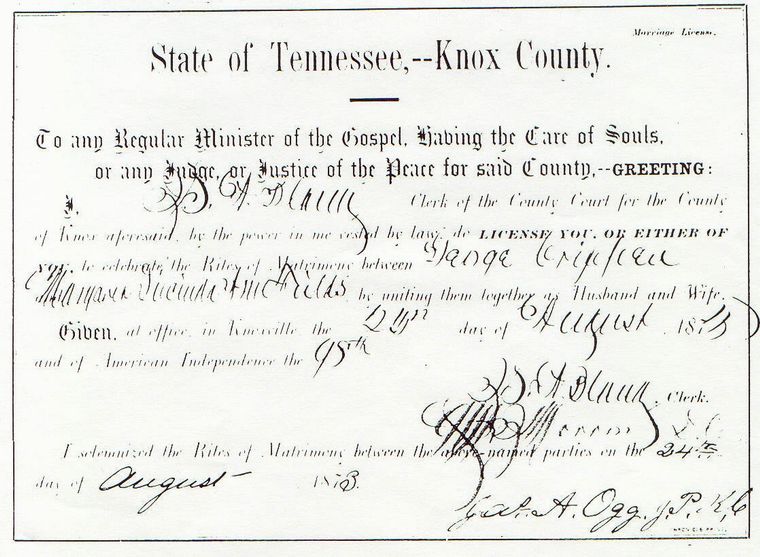 Marriage License.
State of Tennessee,--Knox County.
To any Regular Minister of the Gospel, Having the Care of Souls,
or any Judge, or Justice of the Peace for said County,--GREETING:
I, Clerk of the County Court for the County
of Knox aforesaid, by the power in me vested by law, do LICENSE YOU, OR EITHER OF
YOU, to celebrate the Rites of Matrimony between George
Margaret Lucinda Fields by uniting them together as Husband and Wife.
Given, at office, in Knoxville, the day of August 1873
and of American Independence the 98th
Clerk.
I solemnized the Rites of Matrimony between the above-named parties on the 24th
day of August 1873.
A. Ogg. J.P. K.C